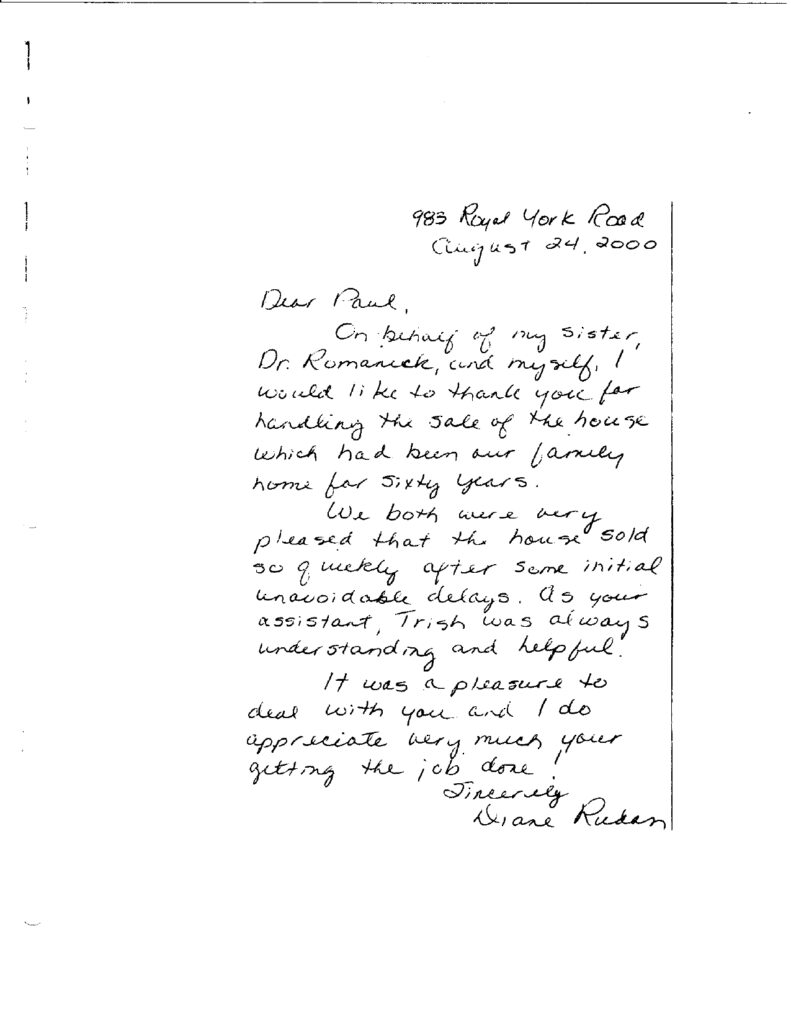 983 Royal York Road
August 24, 2000
Dear Paul,
On behalf of my sister,
Dr. Romanick, and myself, I
would like to thank you for
handling the sale of the house
which had been our family
home for sixty years.
We both were very
pleased that the house sold
so quickly after some initial
unavoidable delays. As your
assistant, Trish was always
understanding and helpful.
It was a pleasure to
deal with you and I do
appreciate very much your
getting the job done!
Sincerely
Diane Rudan